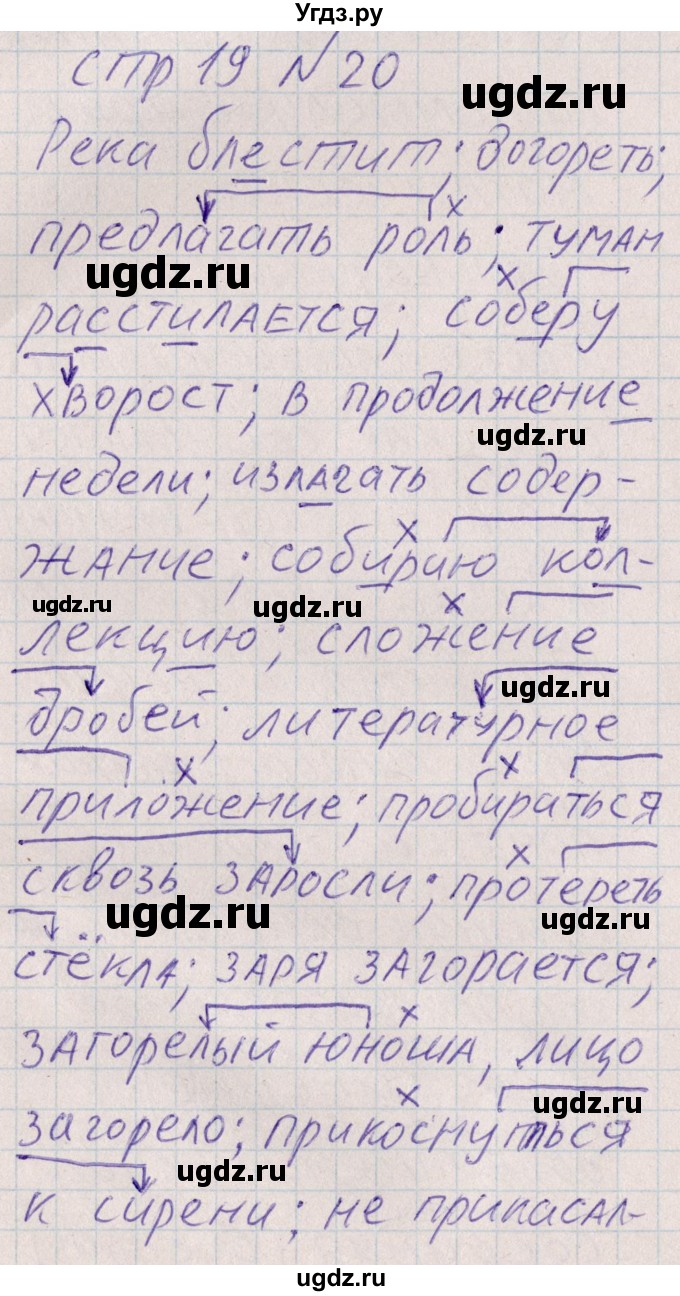 Угдз.ру
стр 19 №20
ugdz.ru
Река блестит; догореть;
предлагать роль; туман
ugdz.ru
расстилается; соберу
хворост; в продолжение
ugdz.ru
недели; излагать содер-
жание; собирию кол-
ugdz.ru ugdz.ru
лекцию; сложение
ugdz.ru
дробей; литературное
приложение; пробираться
сквозь заросли; протереть
ugdz.ru ugdz.ru
стёкла; заря загорается;
загорелый юноша, лицо
ugdz.ru
загорело; прикоснуться
ugdz.ru
к сирени; не прикасал-
ugdz.ru